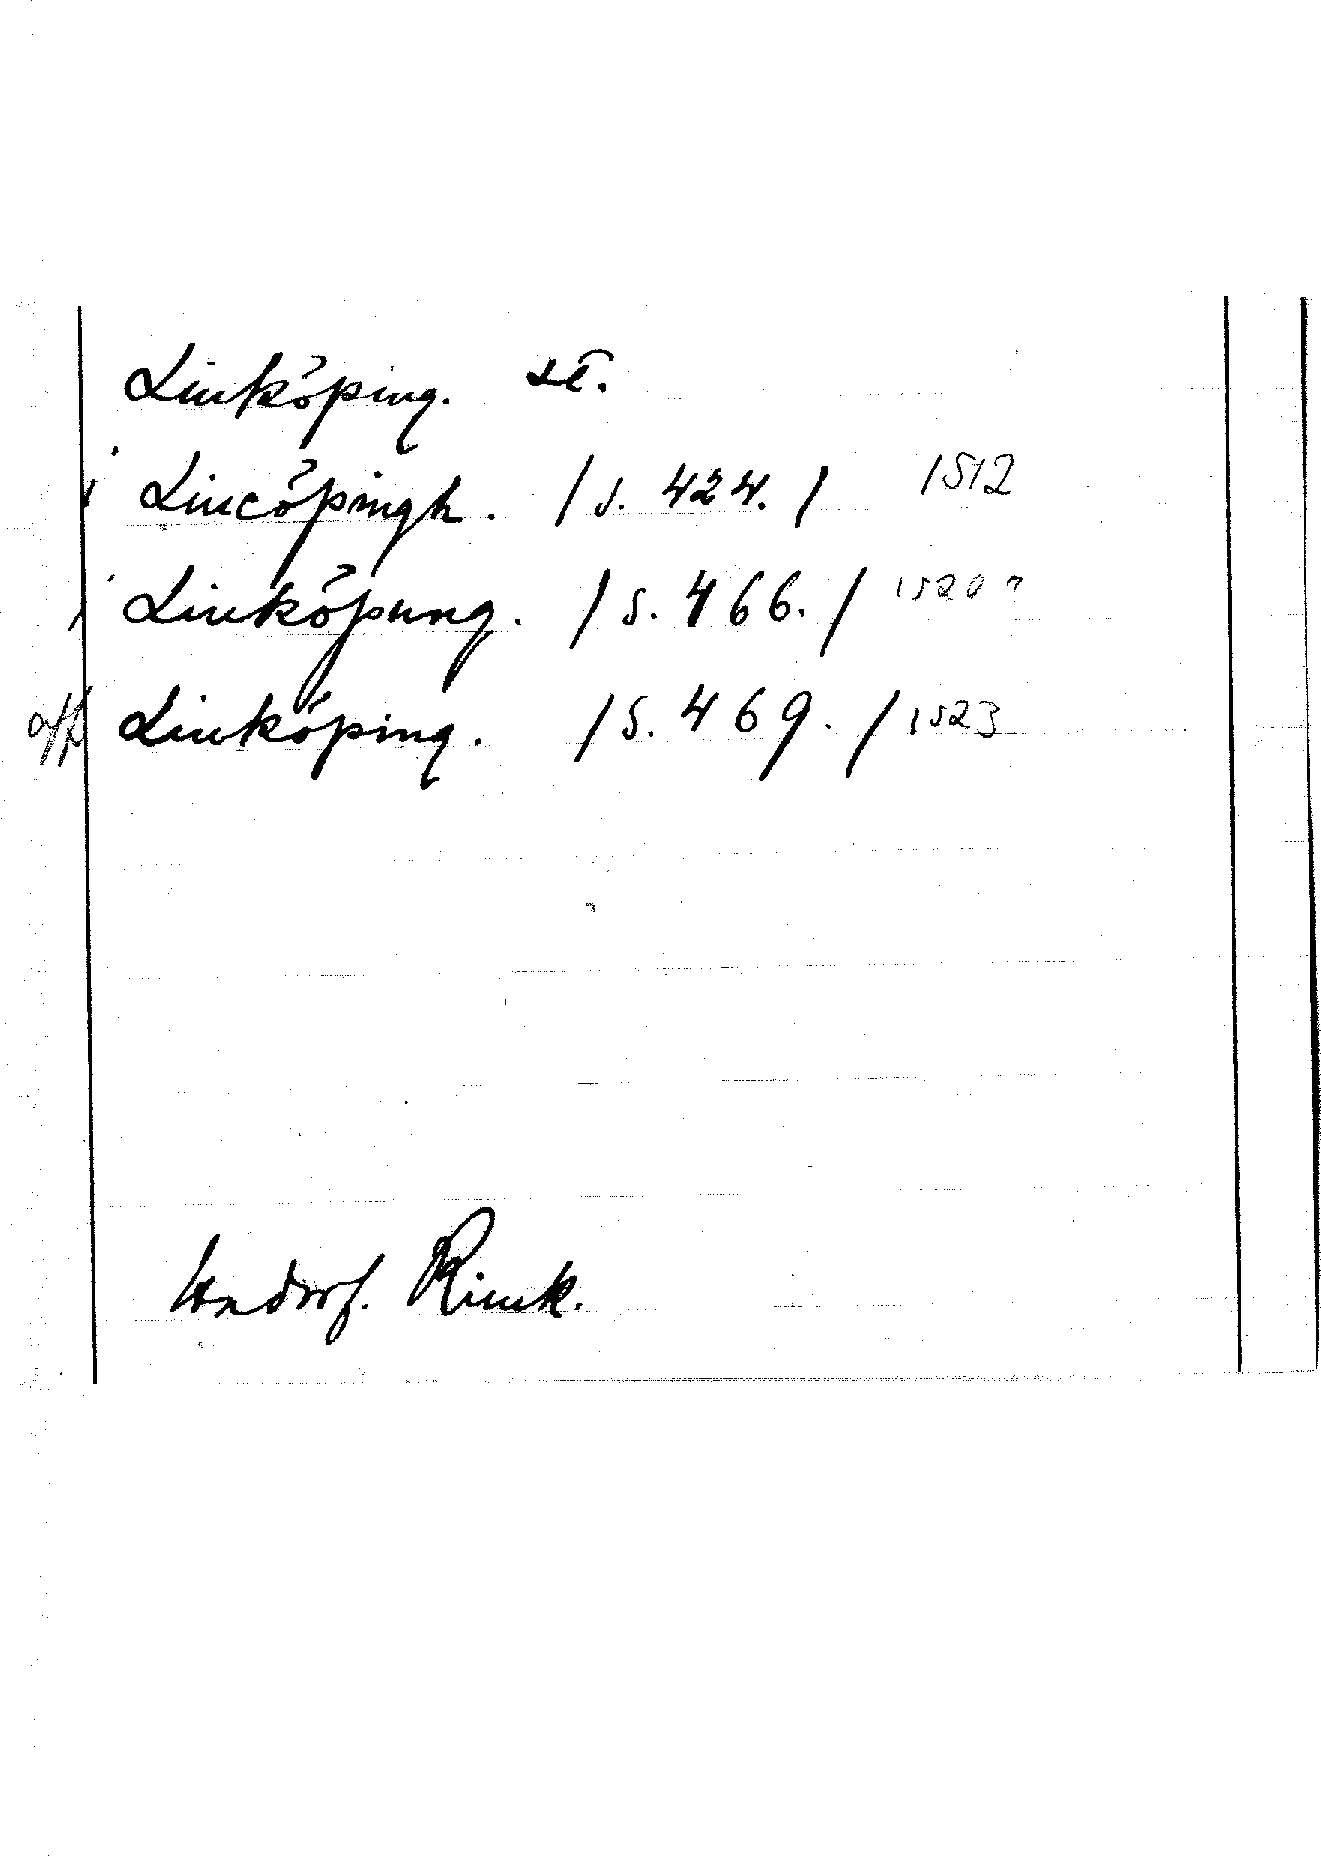 Linköping. st.
i Lincöpingh. /s. 424./ 1512
i Linköpung. /s. 466./ 1520?
aff Linköping. /s. 469./ 1523